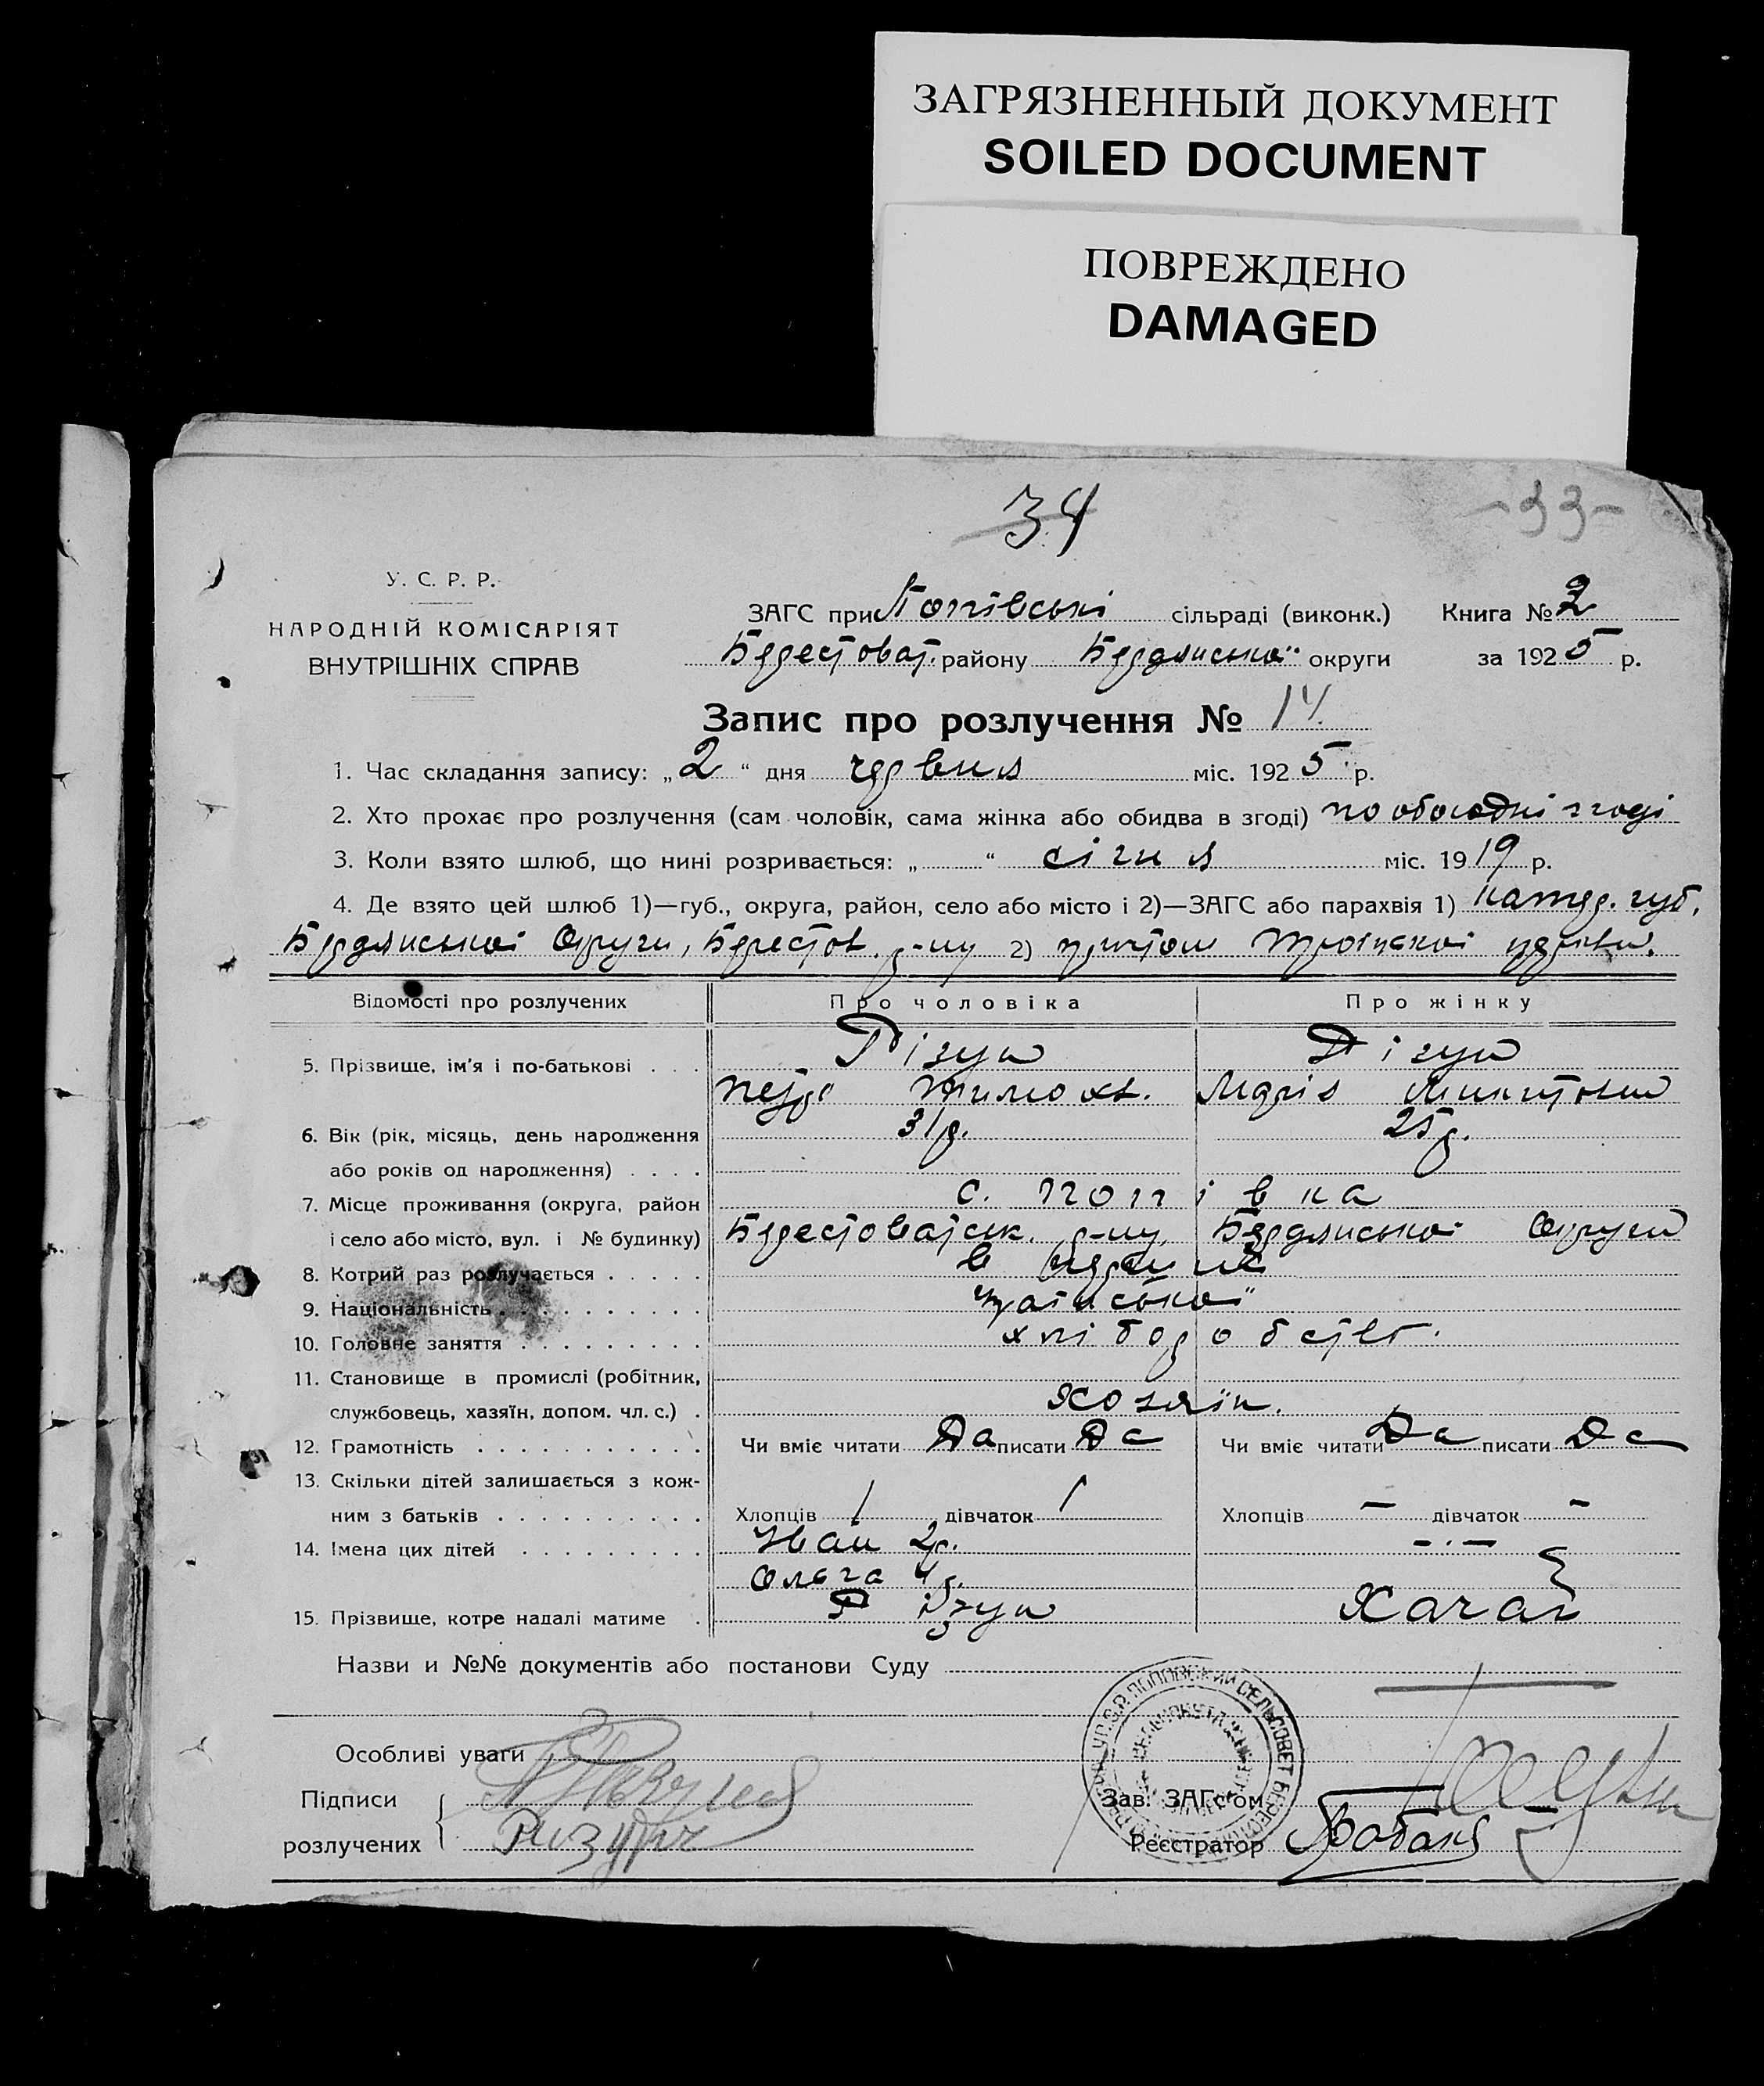 ЗАГРЯЗНЕННЫЙ ДОКУМЕНТ
SOILED DOCUMENT
ПОВРЕЖДЕНО
DAMAGED
34
-33-
У. С. Р. Р.
НАРОДНІЙ КОМІСАРІЯТ
ВНУТРІШНІХ СПРАВ
ЗАГС при Попівські сільраді (виконк.) Книга № 2
Берестоват. району Бердянської округи за 1925 р.
Запис про розлучення № 14
1. Час складання запису: „2“ дня червня міс. 1925 р.
2. Хто прохає про розлучення (сам чоловік, сама жінка або обидва в згоді) по обоюдні згоді
3. Коли взято шлюб, що нині розривається: „ “ січня міс. 1919 р.
4. Де взято цей шлюб 1)—губ., округа, район, село або місто і 2)—ЗАГС або парахвія 1) Катер. губ.
Бердянської Округи, Берестов. р-ну 2) притом Троїцкої церкви.
Відомості про розлучених Про чоловіка Про жінку
5. Прізвище, ім'я і по-батькові . . . Різун Різун
Петро Тимох. Марія Микитовна
6. Вік (рік, місяць, день народження 31 р. 25 р.
або років од народження) . . . .
7. Місце проживання (округа, район с. Попівка
і село або місто, вул. і № будинку) Берестоватськ. р-ну, Бердянської Округи
8. Котрий раз розлучається . . . . . в перший
9. Національність . . . . . . . . . .
10. Головне заняття . . . . . . . . . хліборобств.
11. Становище в промислі (робітник,
службовець, хазяїн, допом. чл. с.) . Хозяїн.
12. Грамотність . . . . . . . . . . . Чи вміє читати Да писати Да Чи вміє читати Да писати Да
13. Скільки дітей залишається з кож-
ним з батьків . . . . . . . . . . Хлопців 1 дівчаток 1 Хлопців — дівчаток -
14. Імена цих дітей . . . . . . . . . Іван 2 р. -.-
Ольга 4 р.
15. Прізвище, котре надалі матиме . Різун Хачай
Назви и №№ документів або постанови Суду
Особливі уваги
Підписи
розлучених
Ризун
Зав. ЗАГс'ом
Реєстратор Бабак